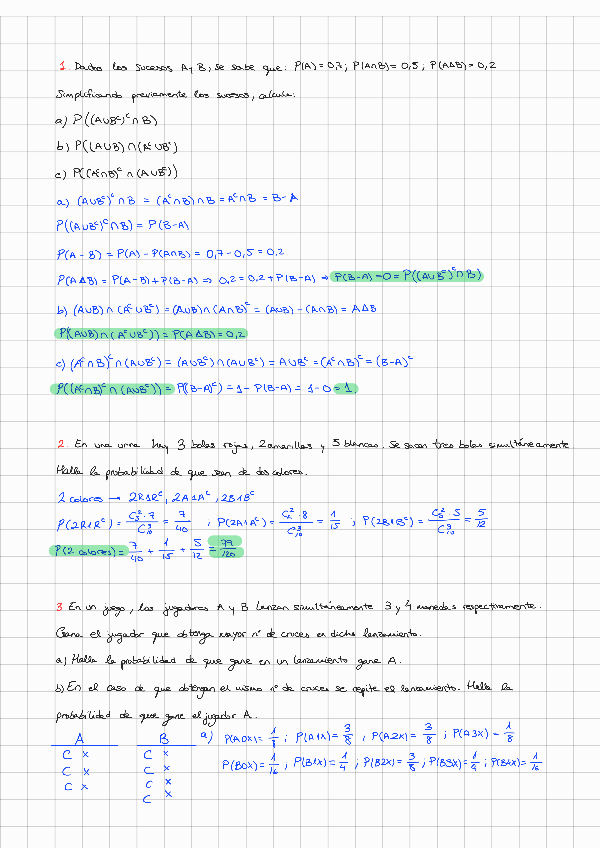 1. Dados los sucesos A y B, se sabe que: P(A) = 0,7; P(A∩B) = 0,5; P(A∆B) = 0,2
Simplificando previamente los sucesos, calcule:
a) P((A∪Bᶜ)ᶜ∩B)
b) P((A∪B)∩(Aᶜ∪Bᶜ))
c) P((Aᶜ∩B)ᶜ∩(A∪Bᶜ))
a) (A∪Bᶜ)ᶜ∩B = (Aᶜ∩B)∩B = Aᶜ∩B = B-A
P((A∪Bᶜ)ᶜ∩B) = P(B-A)
P(A-B) = P(A) - P(A∩B) = 0,7 - 0,5 = 0,2
P(A∆B) = P(A-B) + P(B-A) ⇒ 0,2 = 0,2 + P(B-A) ⇒ P(B-A) = 0 = P((A∪Bᶜ)ᶜ∩B)
b) (A∪B)∩(Aᶜ∪Bᶜ) = (A∪B)∩(A∩B)ᶜ = (A∪B) - (A∩B) = A∆B
P((A∪B)∩(Aᶜ∪Bᶜ)) = P(A∆B) = 0,2
c) (Aᶜ∩B)ᶜ∩(A∪Bᶜ) = (A∪Bᶜ)∩(A∪Bᶜ) = A∪Bᶜ = (Aᶜ∩B)ᶜ = (B-A)ᶜ
P((Aᶜ∩B)ᶜ∩(A∪Bᶜ)) = P((B-A)ᶜ) = 1 - P(B-A) = 1 - 0 = 1.
2. En una urna hay 3 bolas rojas, 2 amarillas y 5 blancas. Se sacan tres bolas simultáneamente
Halla la probabilidad de que sean de dos colores.
2 colores → 2R1Rᶜ, 2A1Aᶜ, 2B1Bᶜ
P(2R1Rᶜ) = C₃²·7/C₁₀³ = 7/40 , P(2A1Aᶜ) = C₂²·8/C₁₀³ = 1/15 ; P(2B1Bᶜ) = C₅²·5/C₁₀³ = 5/12
P(2 colores) = 7/40 + 1/15 + 5/12 = 79/120
3. En un juego, los jugadores A y B lanzan simultáneamente 3 y 4 monedas respectivamente.
Gana el jugador que obtenga mayor nº de cruces en dicho lanzamiento.
a) Halla la probabilidad de que gane en un lanzamiento gane A.
b) En el caso de que obtengan el mismo nº de cruces se repite el lanzamiento. Halla la
probabilidad de que gane el jugador A.
A B a) P(A0X) = 1/8 ; P(A1X) = 3/8 , P(A2X) = 3/8 ; P(A3X) = 1/8
C X C X
P(B0X) = 1/16 , P(B1X) = 1/4 ; P(B2X) = 3/8 , P(B3X) = 1/4 ; P(B4X) = 1/16
C X C X
C X C X
C X